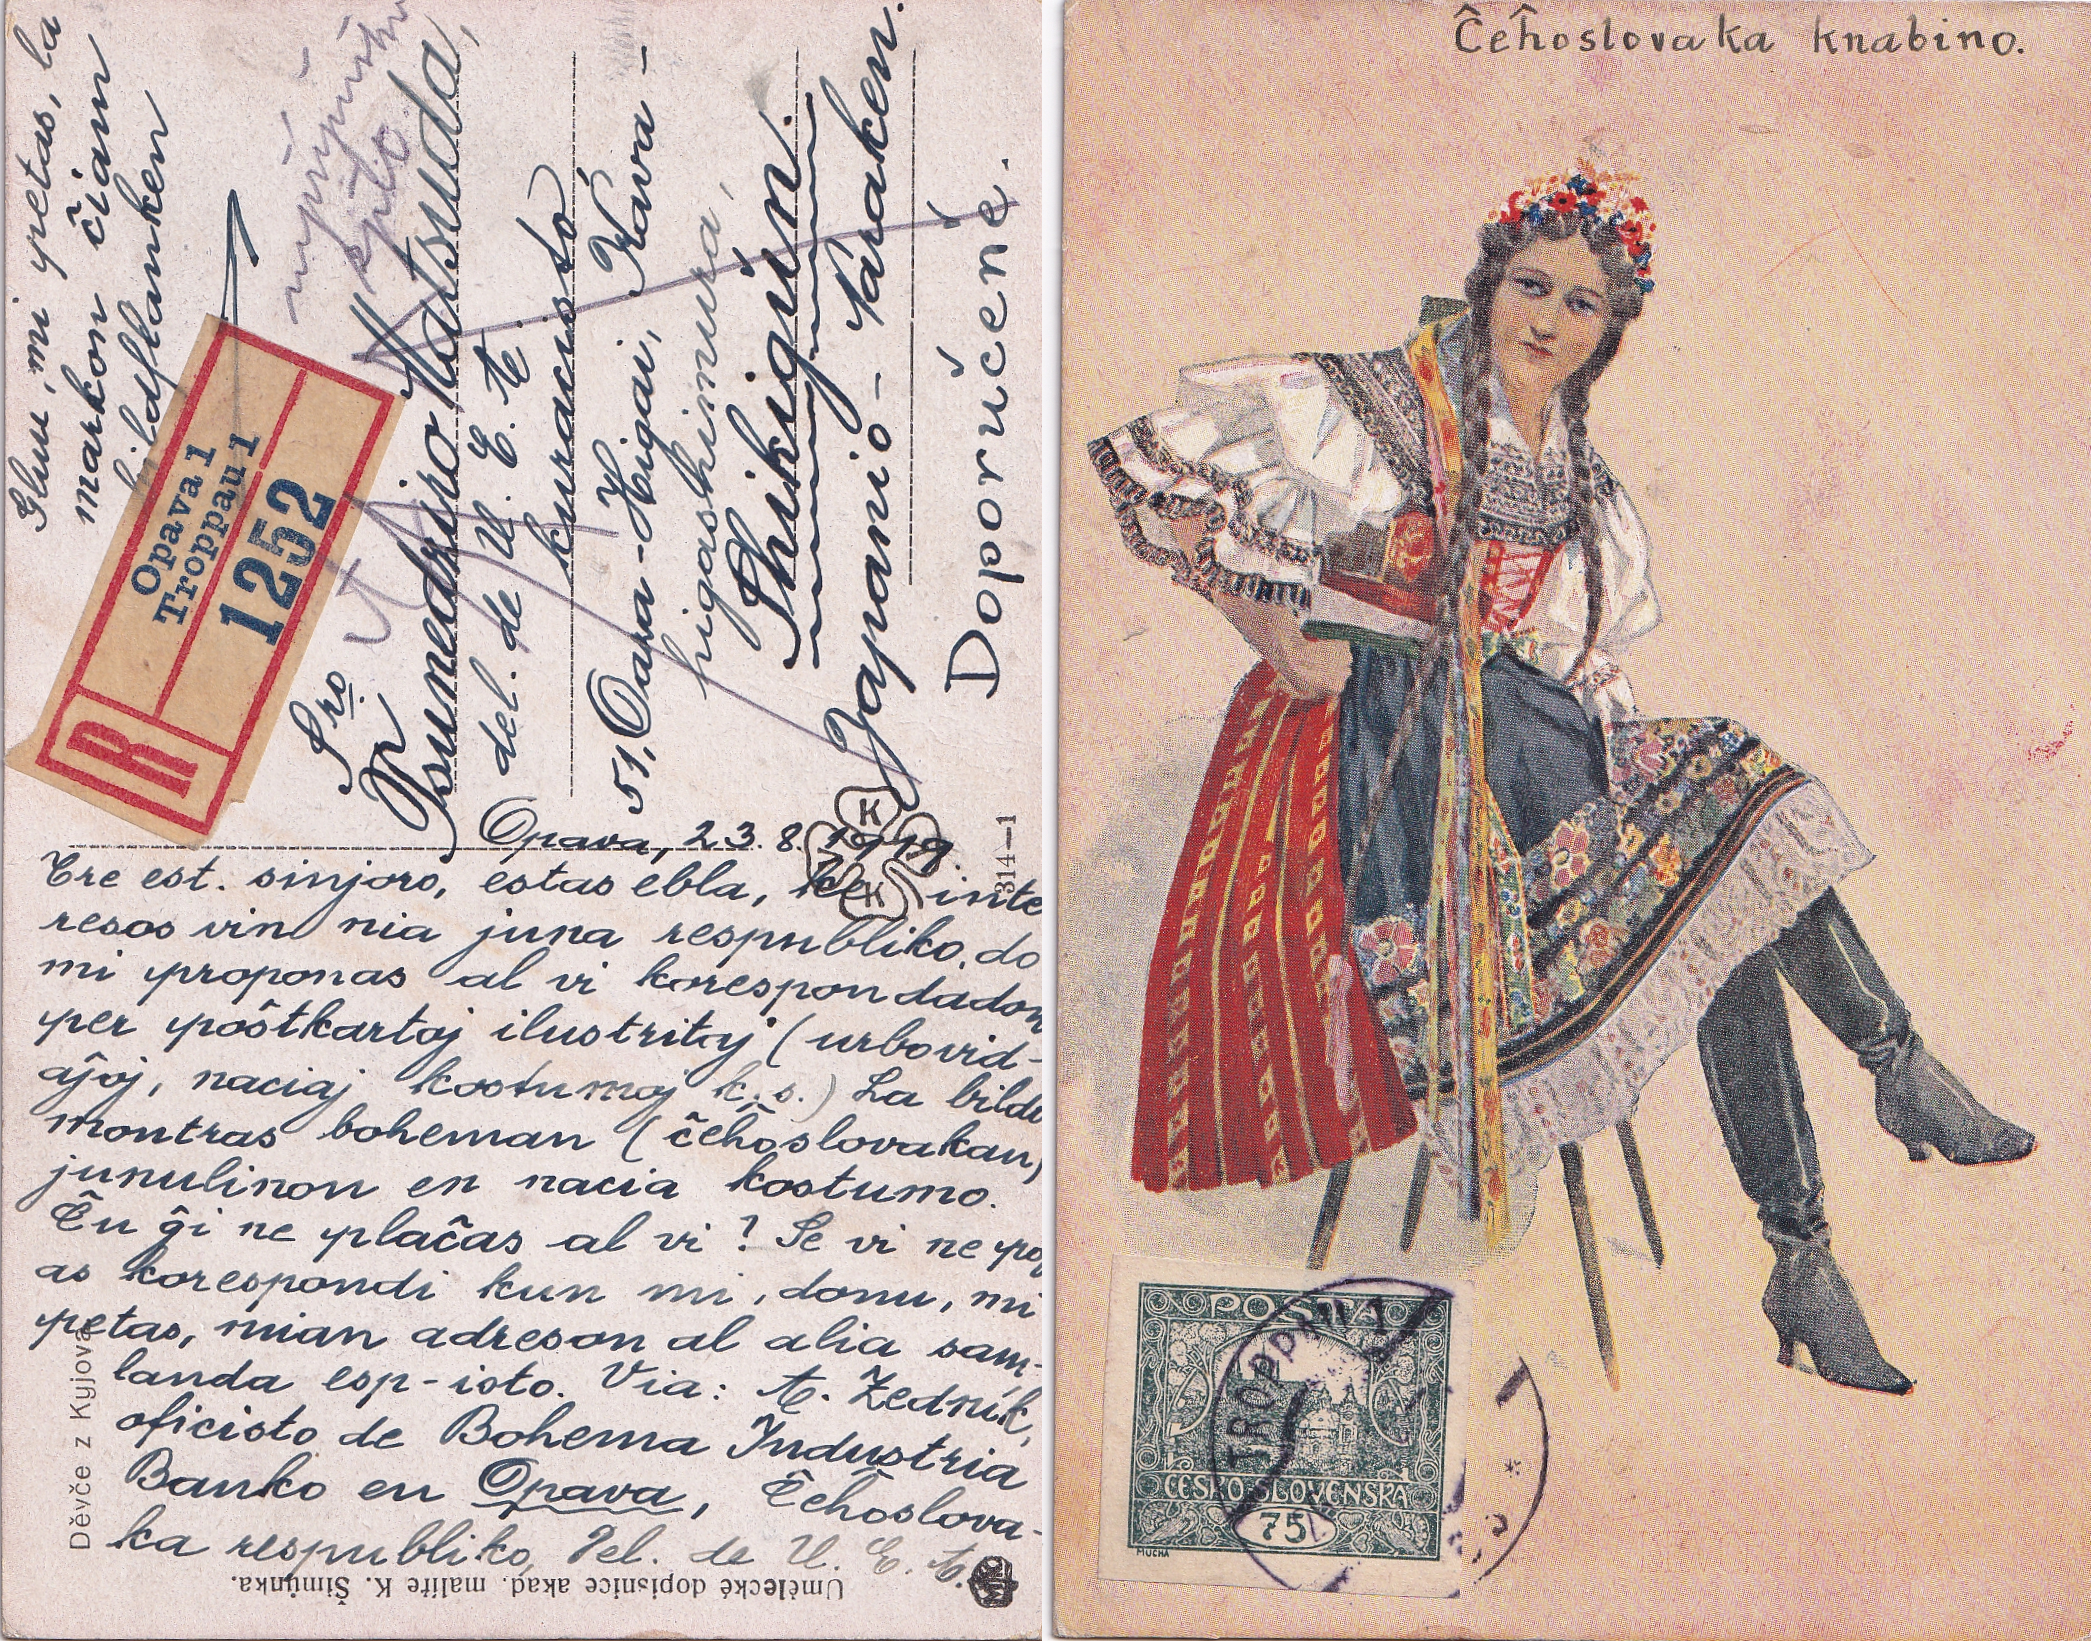 Glun, mi petas, la
markon ĉiam
bildflanken
R
Opava 1
Troppau 1
1252
Sro
Tsunedjiro Matsuda,
del. de U. E. A.
kuracisto
51, Oara-Higai, Kava-
higashimura,
Shikigun.
Japanio - Naraken.
Doporučené.
314-1
Opava, 23. 8. 1919.
Tre est. sinjoro, estas ebla, ke inte
resos vin nia juna respubliko, do
mi proponas al vi korespondadon
per poŝtkartoj ilustritaj (urbovid-
aĵoj, naciaj kostumoj k. s.) La bildo
montras boheman (ĉeĥoslovakan)
junulinon en nacia kostumo.
Ĉu ĝi ne plaĉas al vi? Se vi ne pov
as korespondi kun mi, donu, mi
petas, mian adreson al alia sam-
landa esp-isto. Via: A. Zedník,
oficisto de Bohema Industria
Banko en Opava, Ĉeĥoslova-
ka respubliko, Del. de U. E. A.
Děvče z Kyjova
Umělecké dopisnice akad. malíře K. Šimůnka.
Ĉeĥoslovaka knabino.
POŠTA
ČESKO-SLOVENSKÁ
75
MUCHA
TROPPAU 1